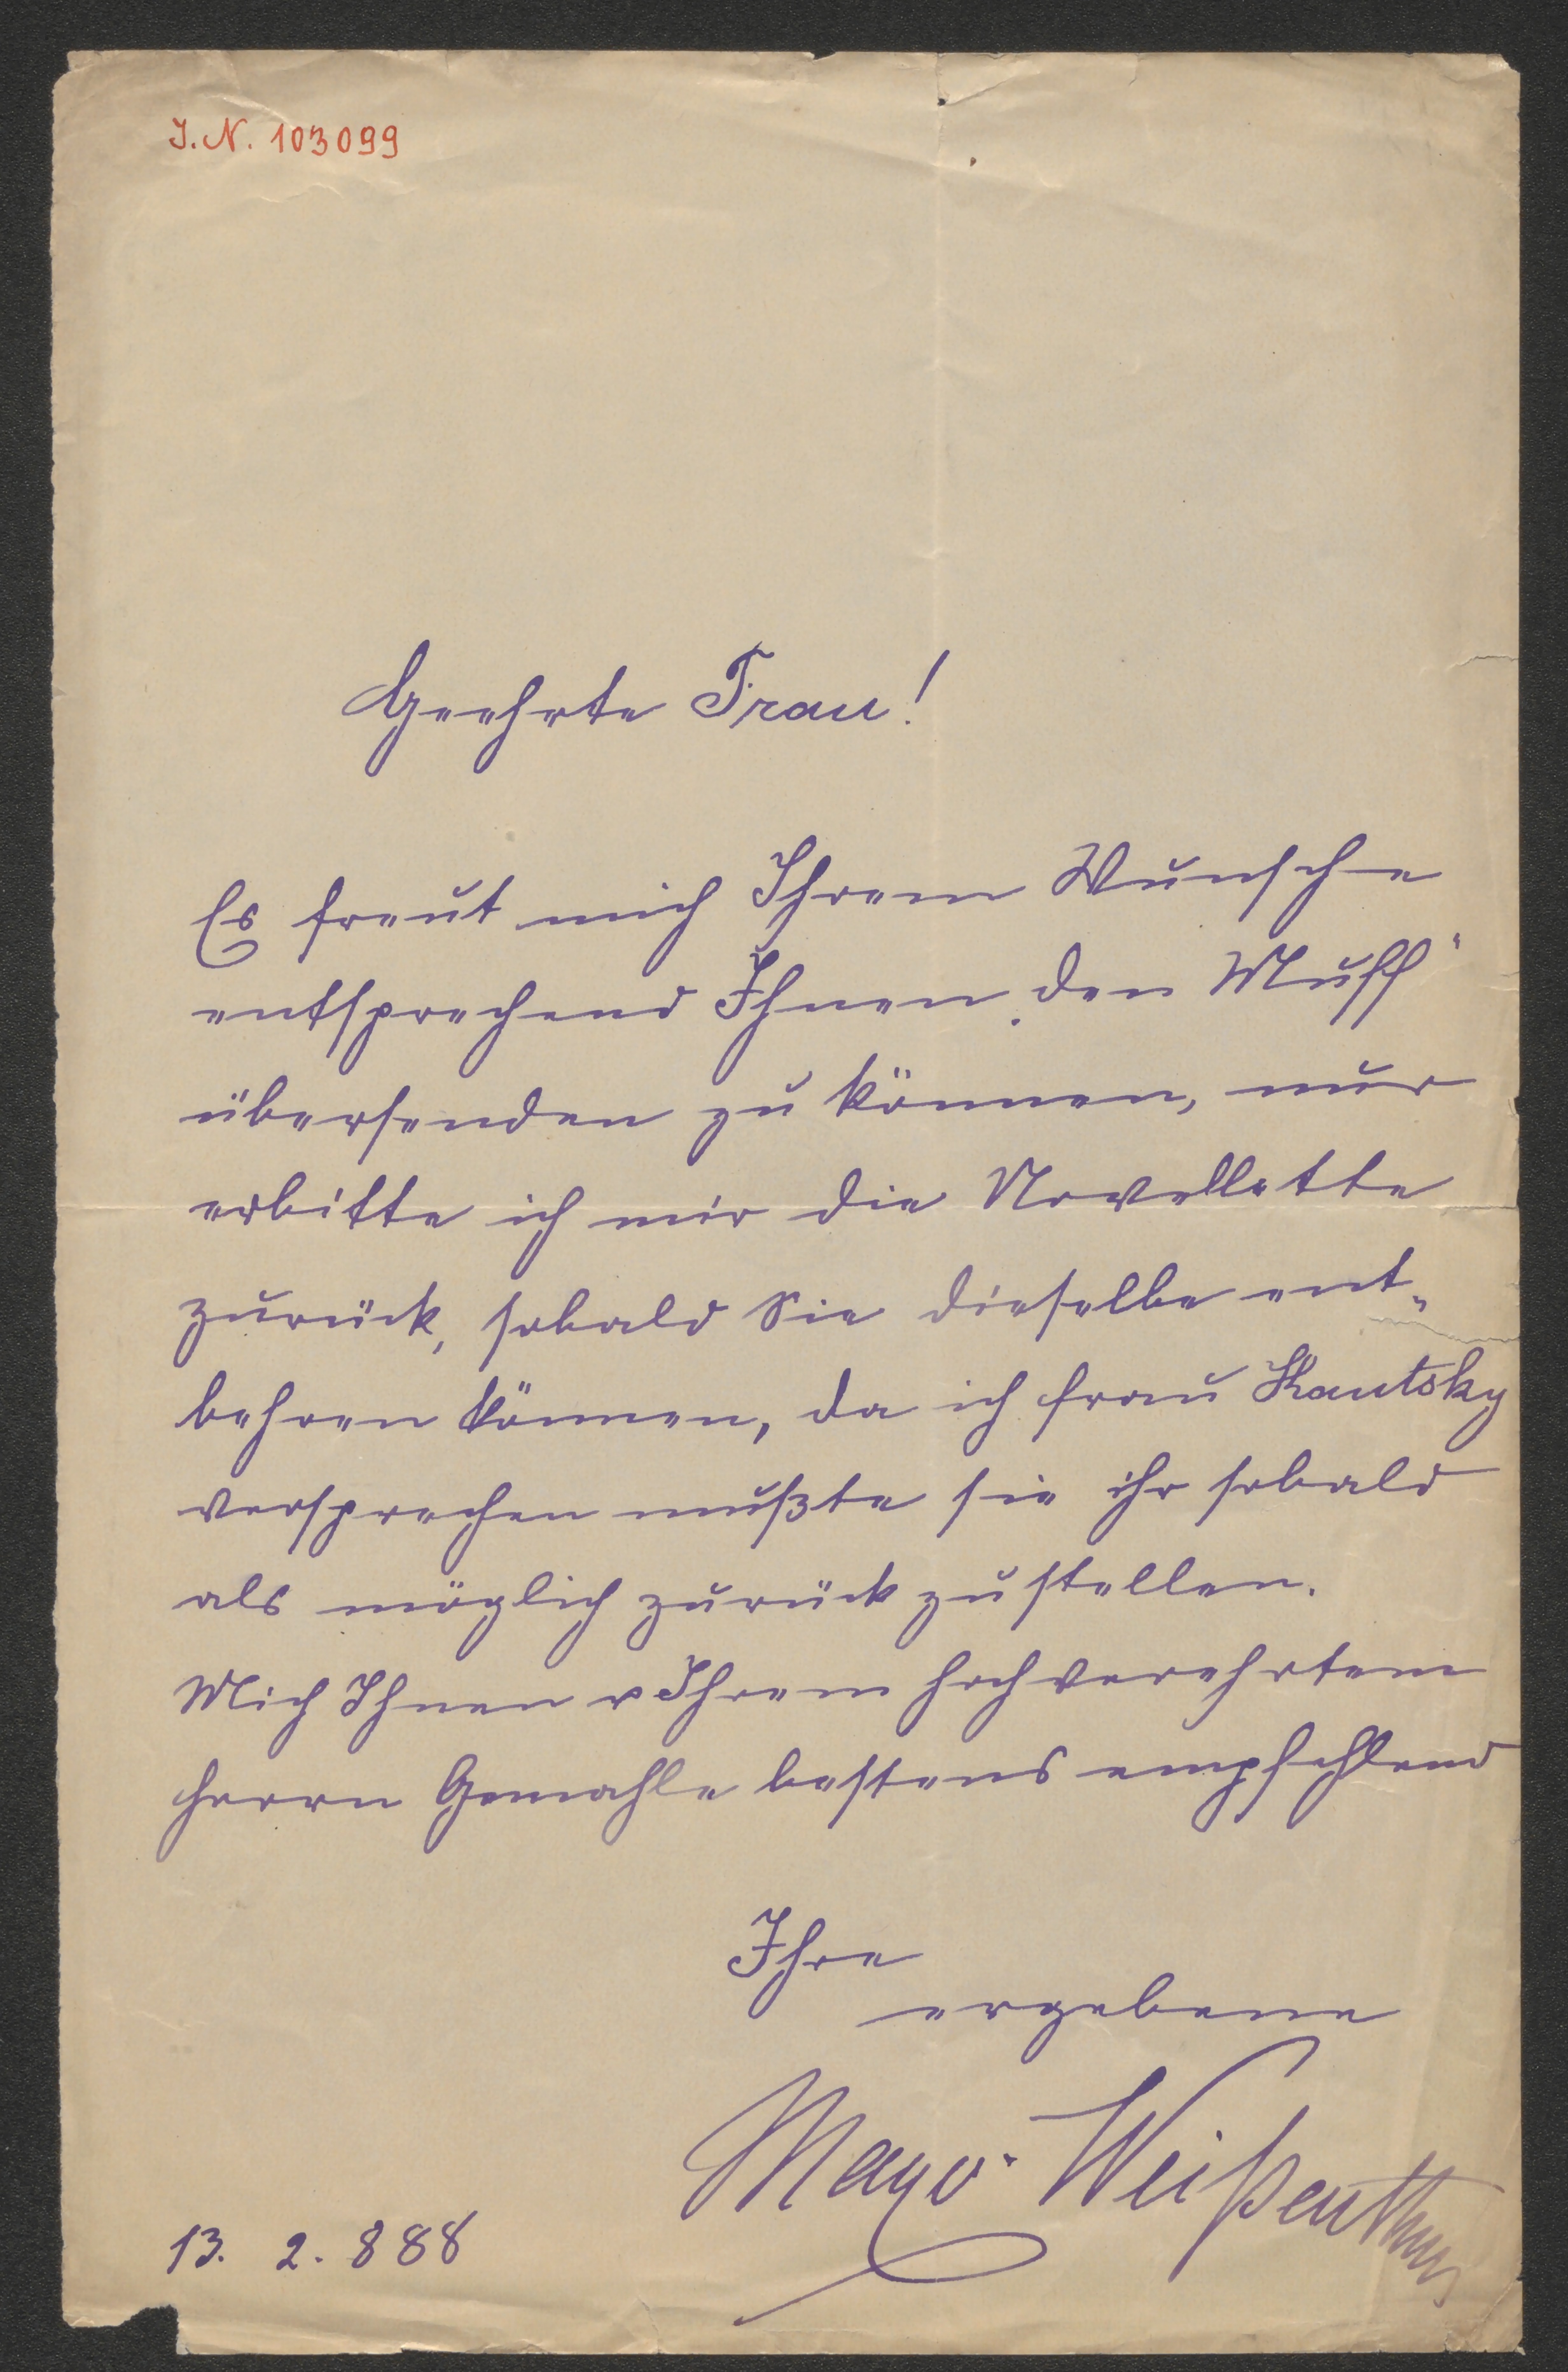 J.N. 103099
Geehrte Frau!
Es freut mich Ihrem Wunsche
entsprechend Ihnen „den Muff“
übersenden zu können, nur
erbitte ich mir die Novellette
zurück, sobald Sie dieselbe ent„
behren können, da ich Frau Kautsky
versprechen mußte sie ihr sobald
als möglich zurückzustellen.
Mich Ihnen u Ihrem hochverehrtem
Herrn Gemahle bestens empfehlend
Ihre
ergebene
Mayo-Weißenthurn
13. 2. 888